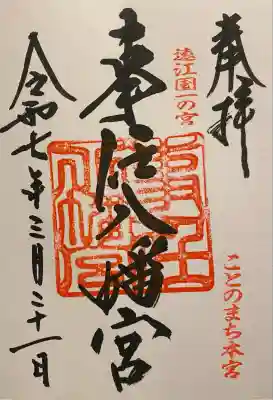 奉拝
ことのまち本宮
遠江國一の宮
事任八幡宮
令和七年三月二十一日